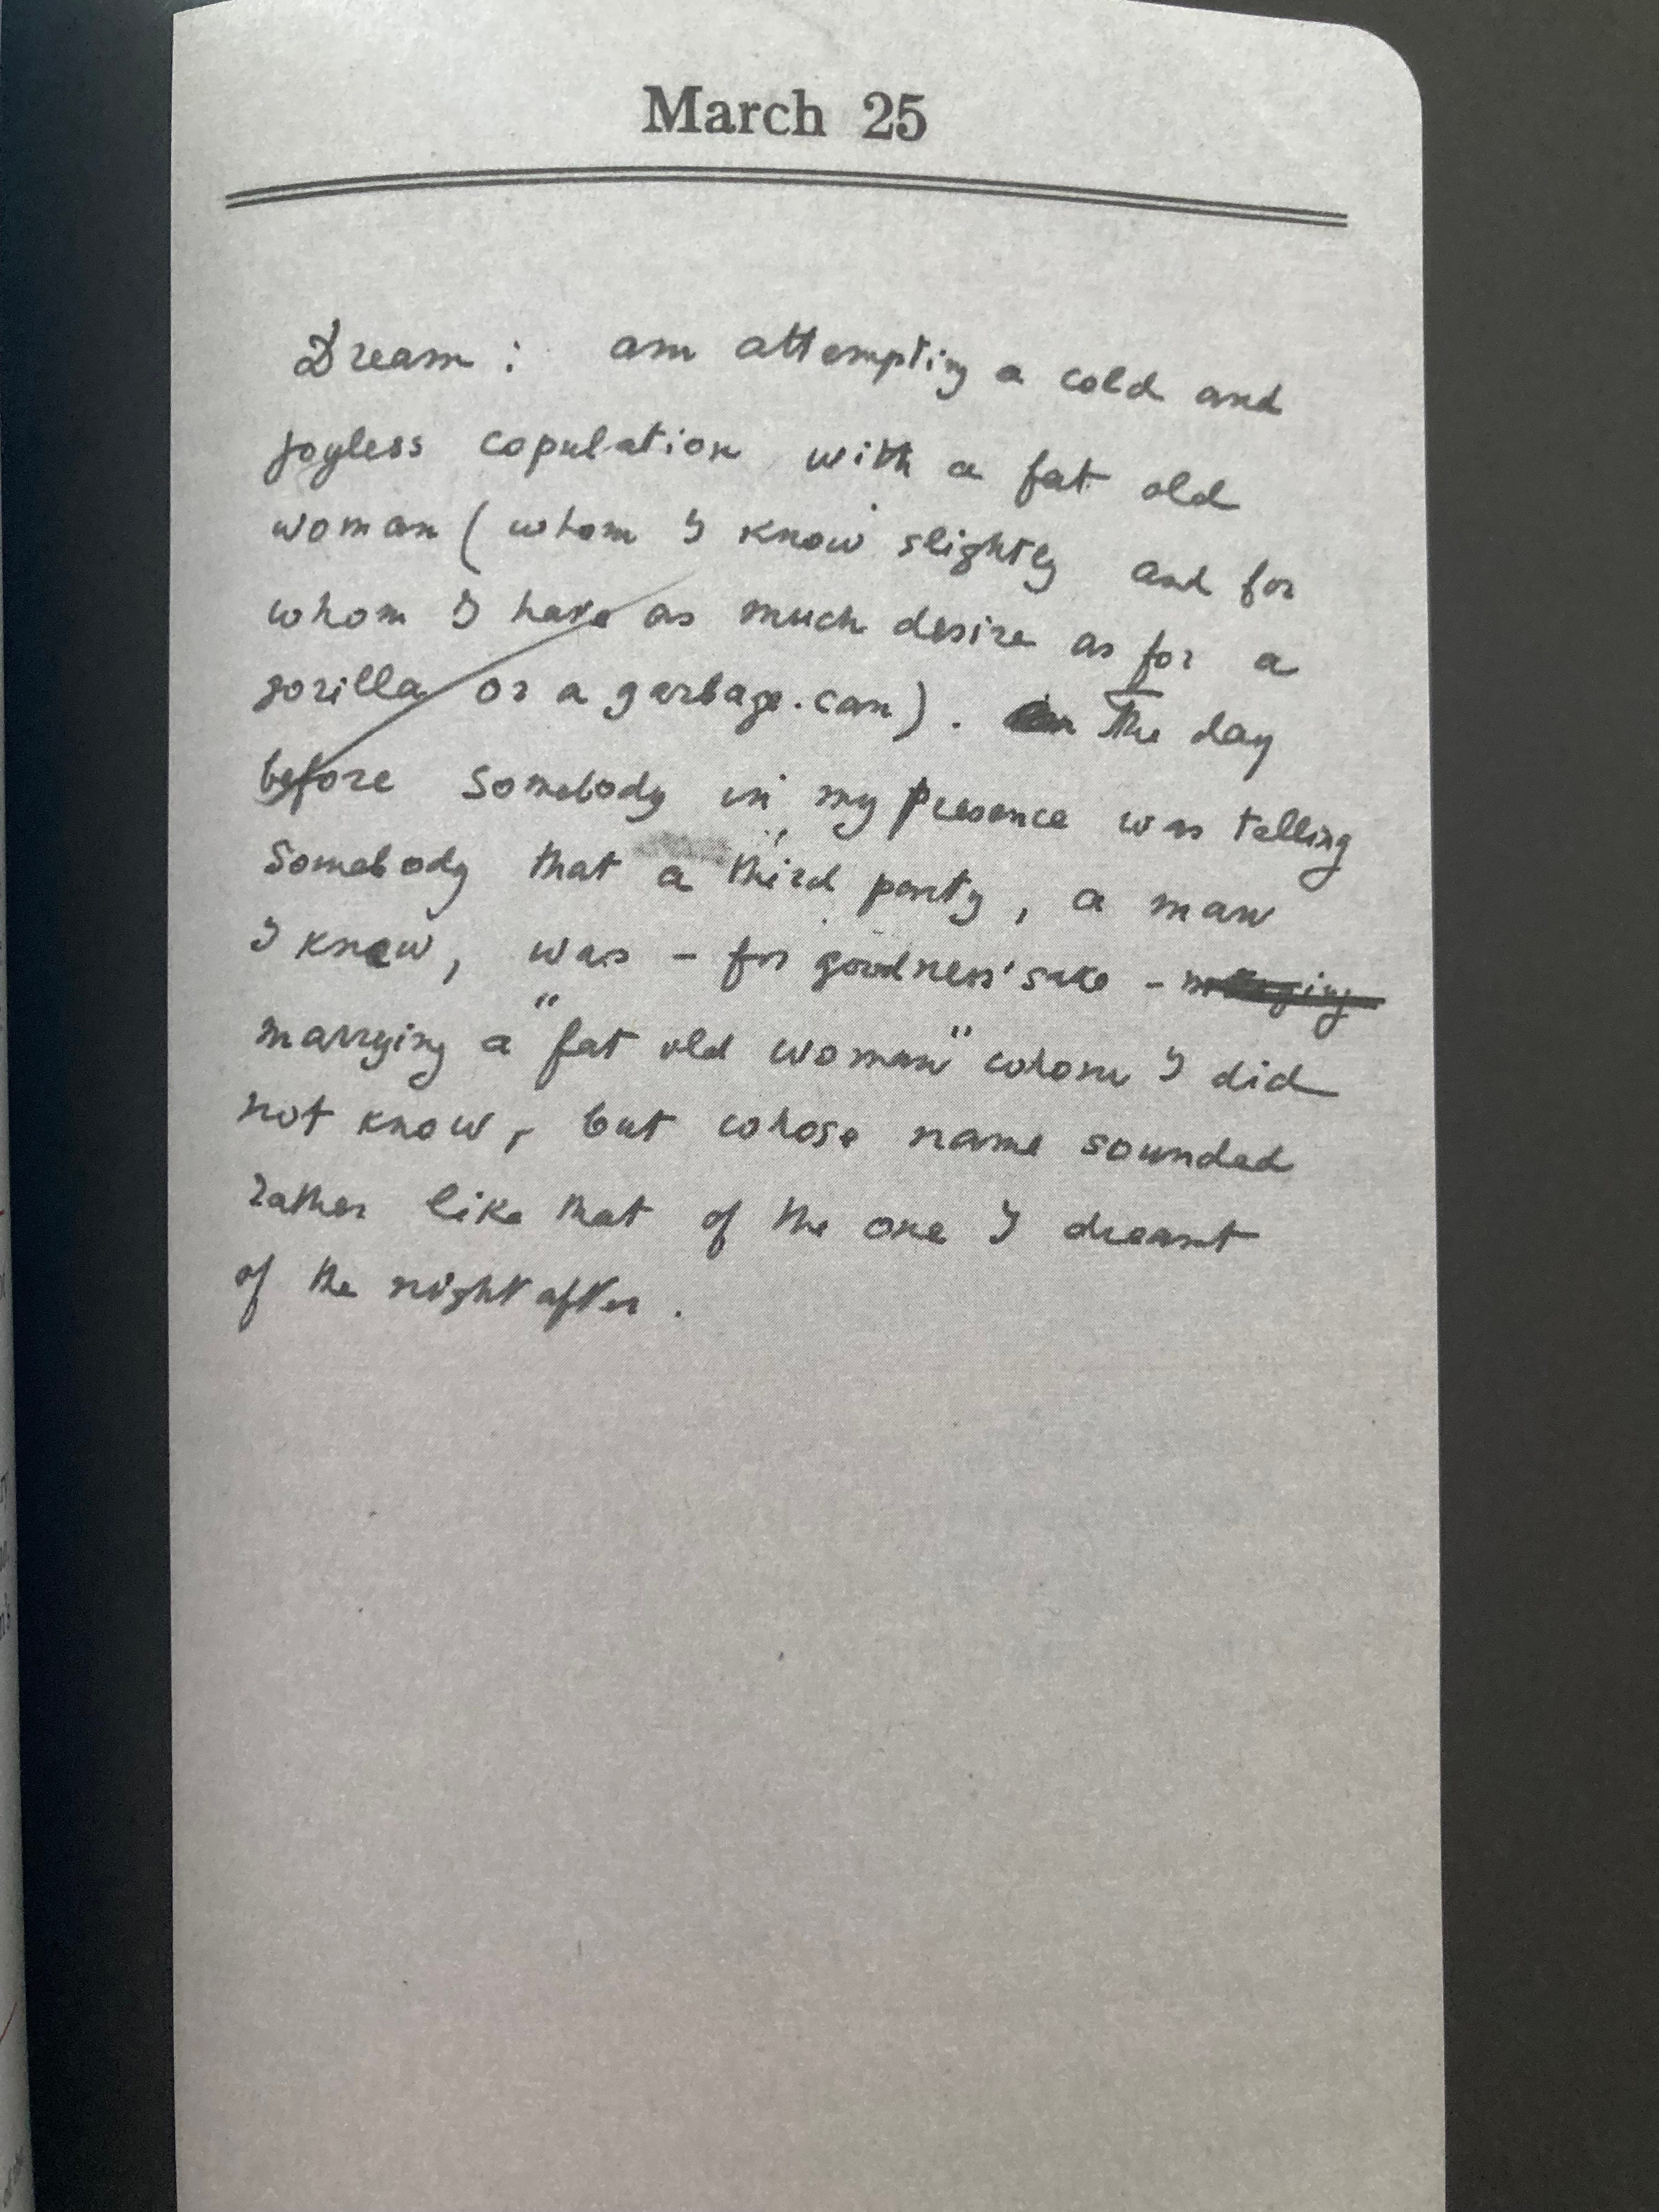 March 25
Dream : am attempting a cold and
joyless copulation with a fat old
woman ( whom I know slightly and for
whom I have as much desire as for a
gorilla or a garbage.can) . The day
before somebody in my presence was telling
somebody that a third party, a man
I knew, was - for goodness' sake -
marrying a "fat old woman" whom I did
not know, but whose name sounded
rather like that of the one I dreamt
of the night after .